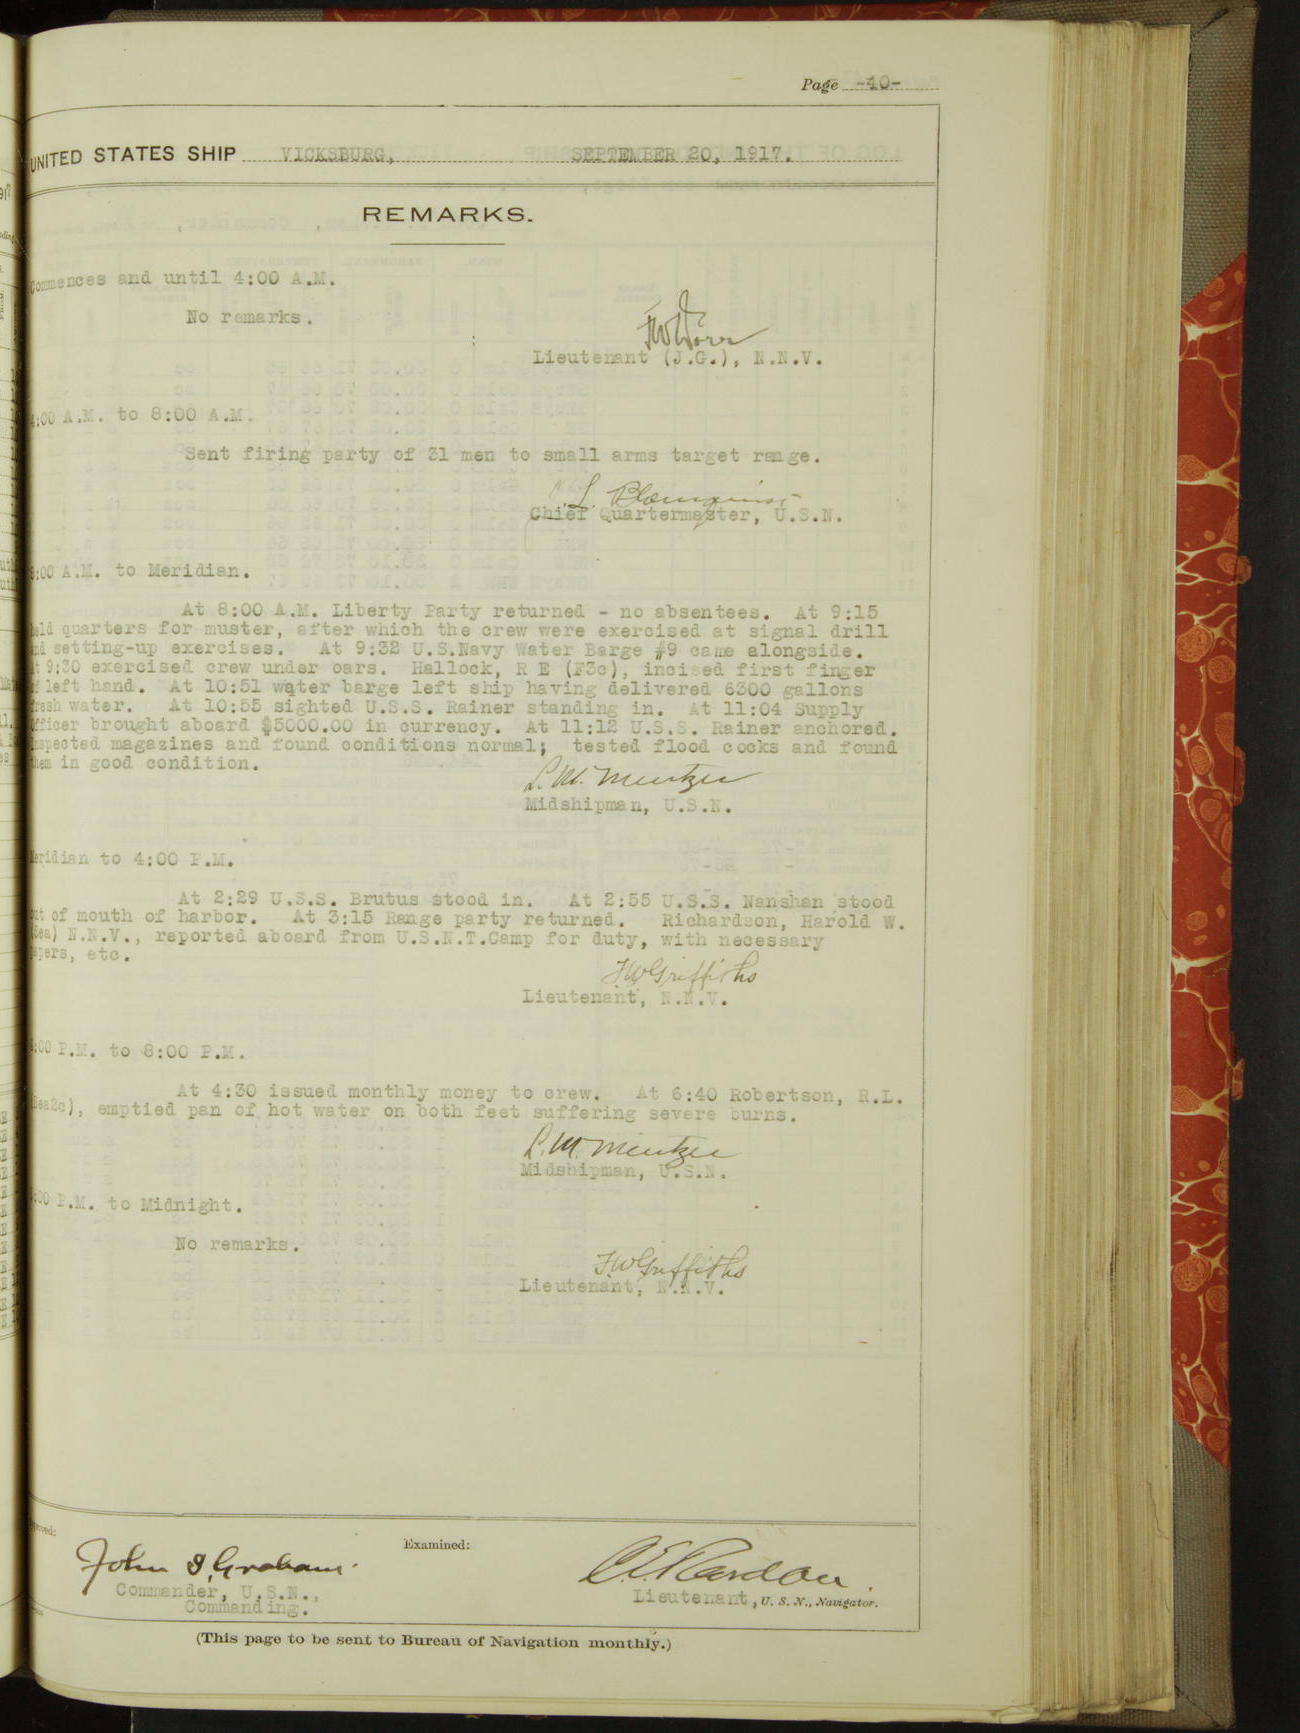 Page -40-
UNITED STATES SHIP VICKSBURG, SEPTEMBER 20, 1917.
REMARKS.
Commences and until 4:00 A.M.
No remarks.
Lieutenant (J.G.), N.N.V.
4:00 A.M. to 8:00 A.M.
Sent firing party of 31 men to small arms target range.
Chief Quartermaster, U.S.N.
8:00 A.M. to Meridian.
At 8:00 A.M. Liberty Party returned - no absentees. At 9:15
held quarters for muster, after which the crew were exercised at signal drill
and setting-up exercises. At 9:32 U.S.Navy Water Barge #9 came alongside.
At 9:30 exercised crew under oars. Hallock, R E (F3c), incised first finger
of left hand. At 10:51 water barge left ship having delivered 6300 gallons
fresh water. At 10:55 sighted U.S.S. Rainer standing in. At 11:04 Supply
Officer brought aboard $5000.00 in currency. At 11:12 U.S.S. Rainer anchored.
Inspected magazines and found conditions normal; tested flood cocks and found
them in good condition.
L. M. Mentzer
Midshipman, U.S.N.
Meridian to 4:00 P.M.
At 2:29 U.S.S. Brutus stood in. At 2:55 U.S.S. Nanshan stood
out of mouth of harbor. At 3:15 Range party returned. Richardson, Harold W.
(Sea) N.N.V., reported aboard from U.S.N.T.Camp for duty, with necessary
papers, etc.
FWGriffiths
Lieutenant, N.N.V.
4:00 P.M. to 8:00 P.M.
At 4:30 issued monthly money to crew. At 6:40 Robertson, R.L.
(Sea2c), emptied pan of hot water on both feet suffering severe burns.
L. M. Mentzer
Midshipman, U.S.N.
8:00 P.M. to Midnight.
No remarks.
FWGriffiths
Lieutenant, N.N.V.
Approved:
Examined:
John S. Graham
Commander, U.S.N.,
Commanding.
Lieutenant, U. S. N., Navigator.
(This page to be sent to Bureau of Navigation monthly.)